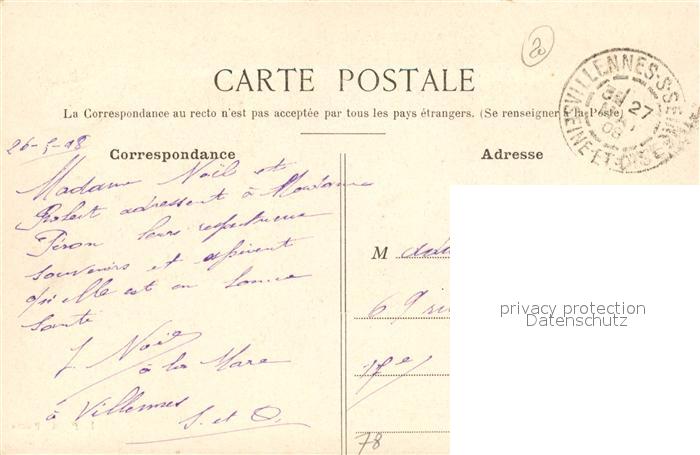 20
CARTE POSTALE
La Correspondance au recto n'est pas acceptée par tous les pays étrangers. (Se renseigner à la Poste)
VILLENNES-S-SEINE
27
08
SEINE-ET-OISE
26-5-08
Correspondance
Madame Noël et
Robert adressent à Madame
Péron leurs respectueux
souvenirs et espèrent
qu'elle est en bonne
santé
J. Noël
à la Mare
à Villennes
S. et O.
Adresse
M
6
17e
78
privacy protection
Datenschutz